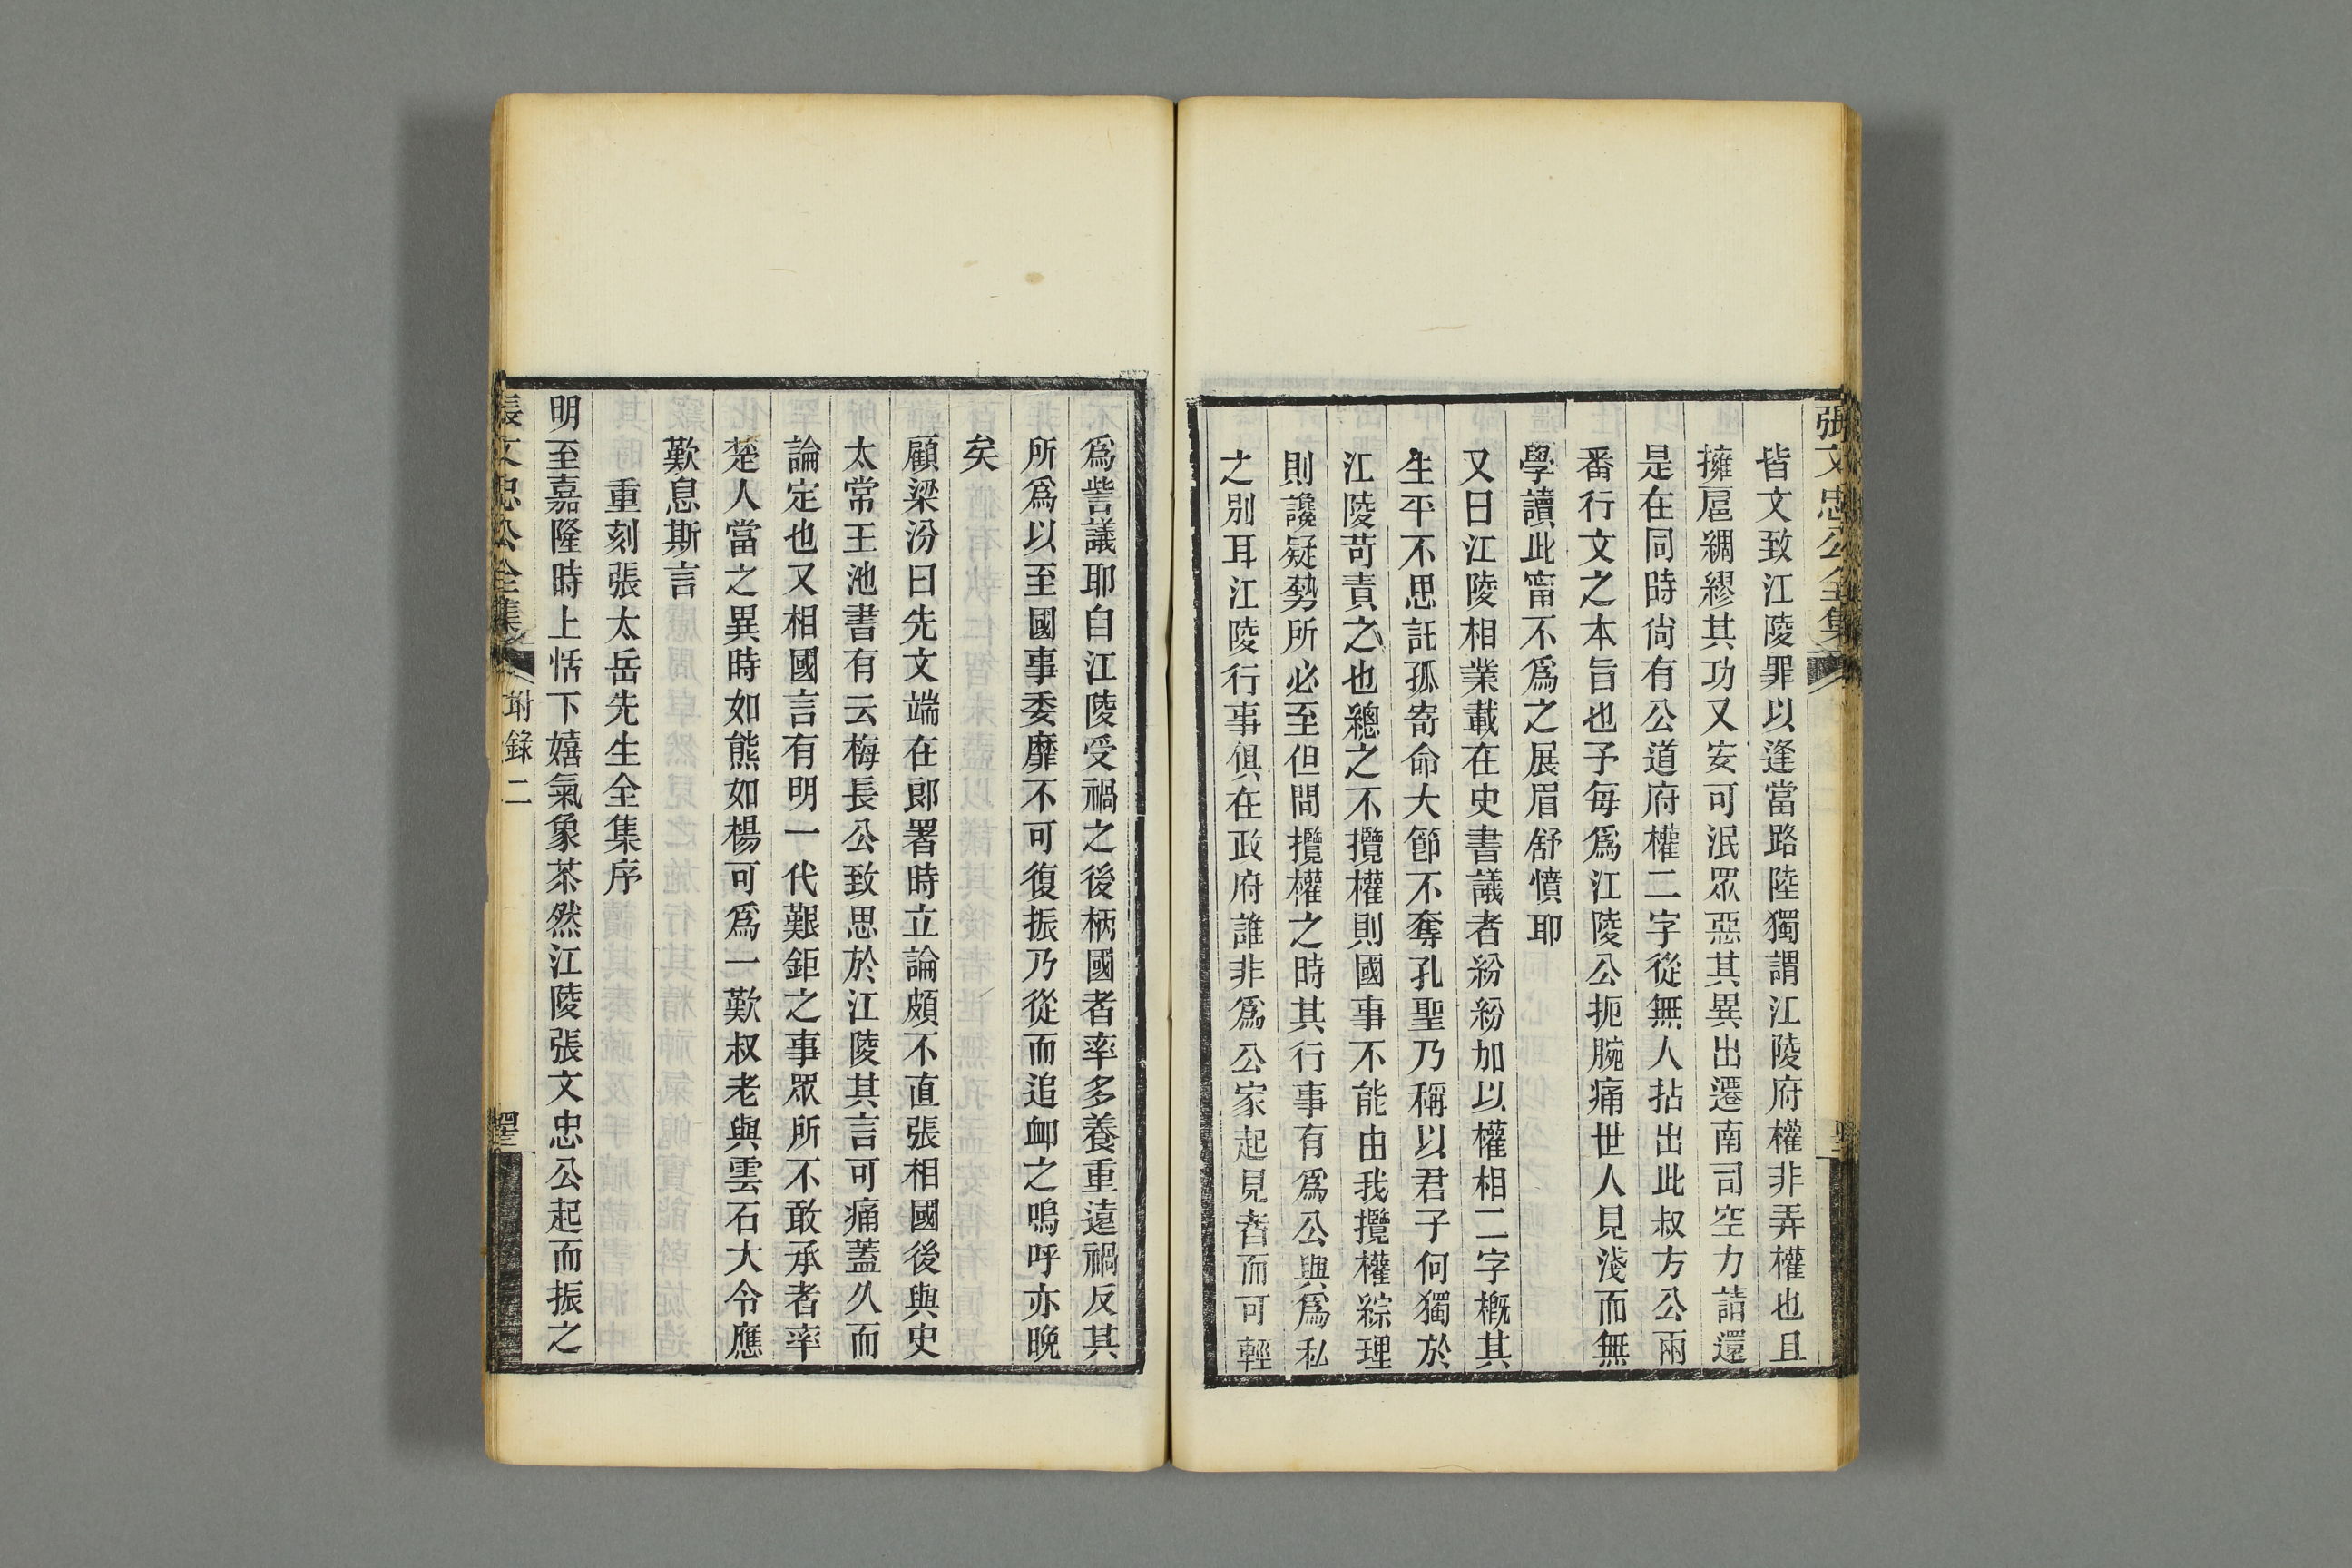 張文忠公全集
皆文致江陵罪以逢當路陸獨謂江陵府權非弄權也且
擁扈綢繆其功又安可泯眾惡其異出遷南司空力請還
是在同時尙有公道府權二字從無人拈出此叔方公兩
番行文之本旨也予每爲江陵公扼腕痛世人見淺而無
學讀此甯不爲之展眉舒憤耶
又曰江陵相業載在史書議者紛紛加以權相二字槪其
生平不思託孤寄命大節不奪孔聖乃稱以君子何獨於
江陵苛責之也總之不攬權則國事不能由我攬權綜理
則讒疑勢所必至但問攬權之時其行事有爲公與爲私
之別耳江陵行事俱在政府誰非爲公家起見者而可輕
爲訾議耶自江陵受禍之後柄國者率多養重遠禍反其
所爲以至國事委靡不可復振乃從而追卹之嗚呼亦晚
矣
顧梁汾曰先文端在郞署時立論頗不直張相國後與史
太常王池書有云梅長公致思於江陵其言可痛蓋久而
論定也又相國言有明一代艱鉅之事眾所不敢承者率
楚人當之異時如熊如楊可爲一歎叔老與雲石大令應
歎息斯言
重刻張太岳先生全集序
明至嘉隆時上恬下嬉氣象茶然江陵張文忠公起而振之
張文忠公全集 附錄二